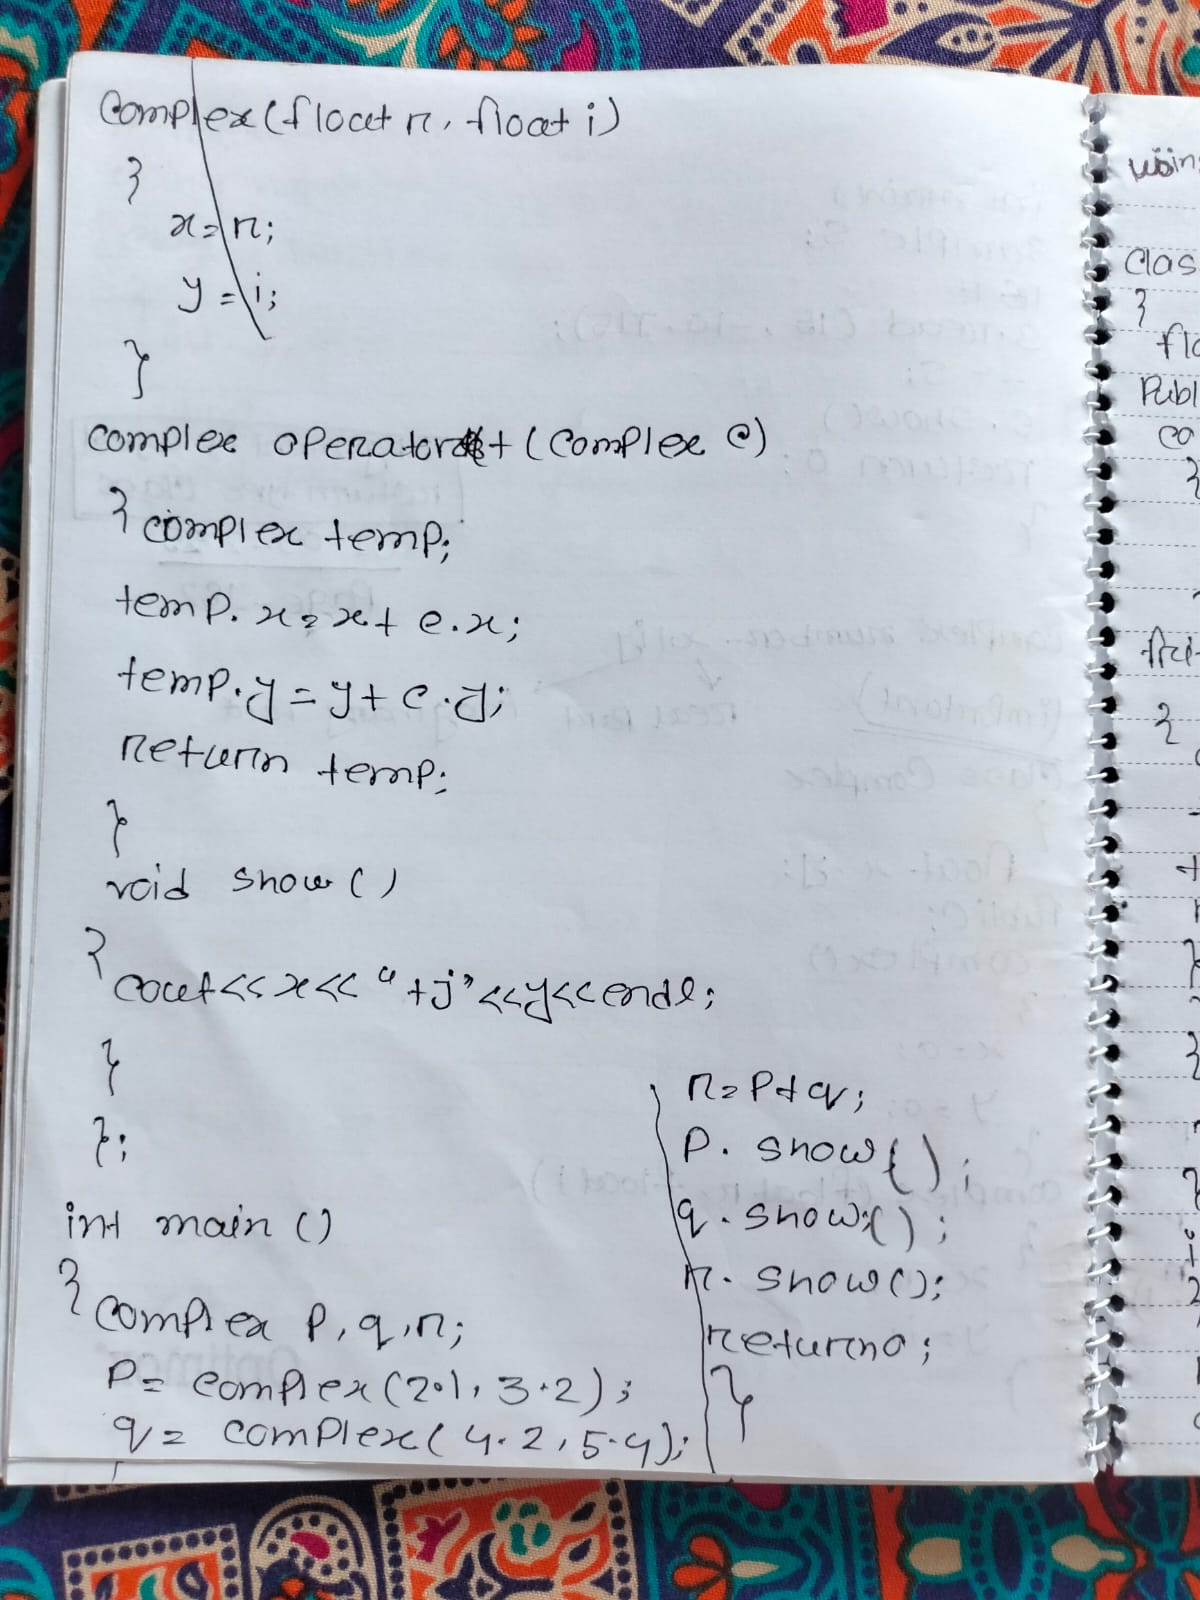 Complex(float r, float i)
{
x=r;
y=i;
}
complex operator+(complex c)
{ complex temp;
temp.x=x+c.x;
temp.y=y+c.y;
return temp;
}
void show()
{
cout<<x<<"+j"<<y<<endl;
}
};
int main()
{ complex p,q,r;
p= complex(2.1, 3.2);
q= complex(4.2,5.4);
r=p+q;
p. show();
q. show();
r. show();
return 0;
}
usin
Clas
{
flo
Publ
co
{